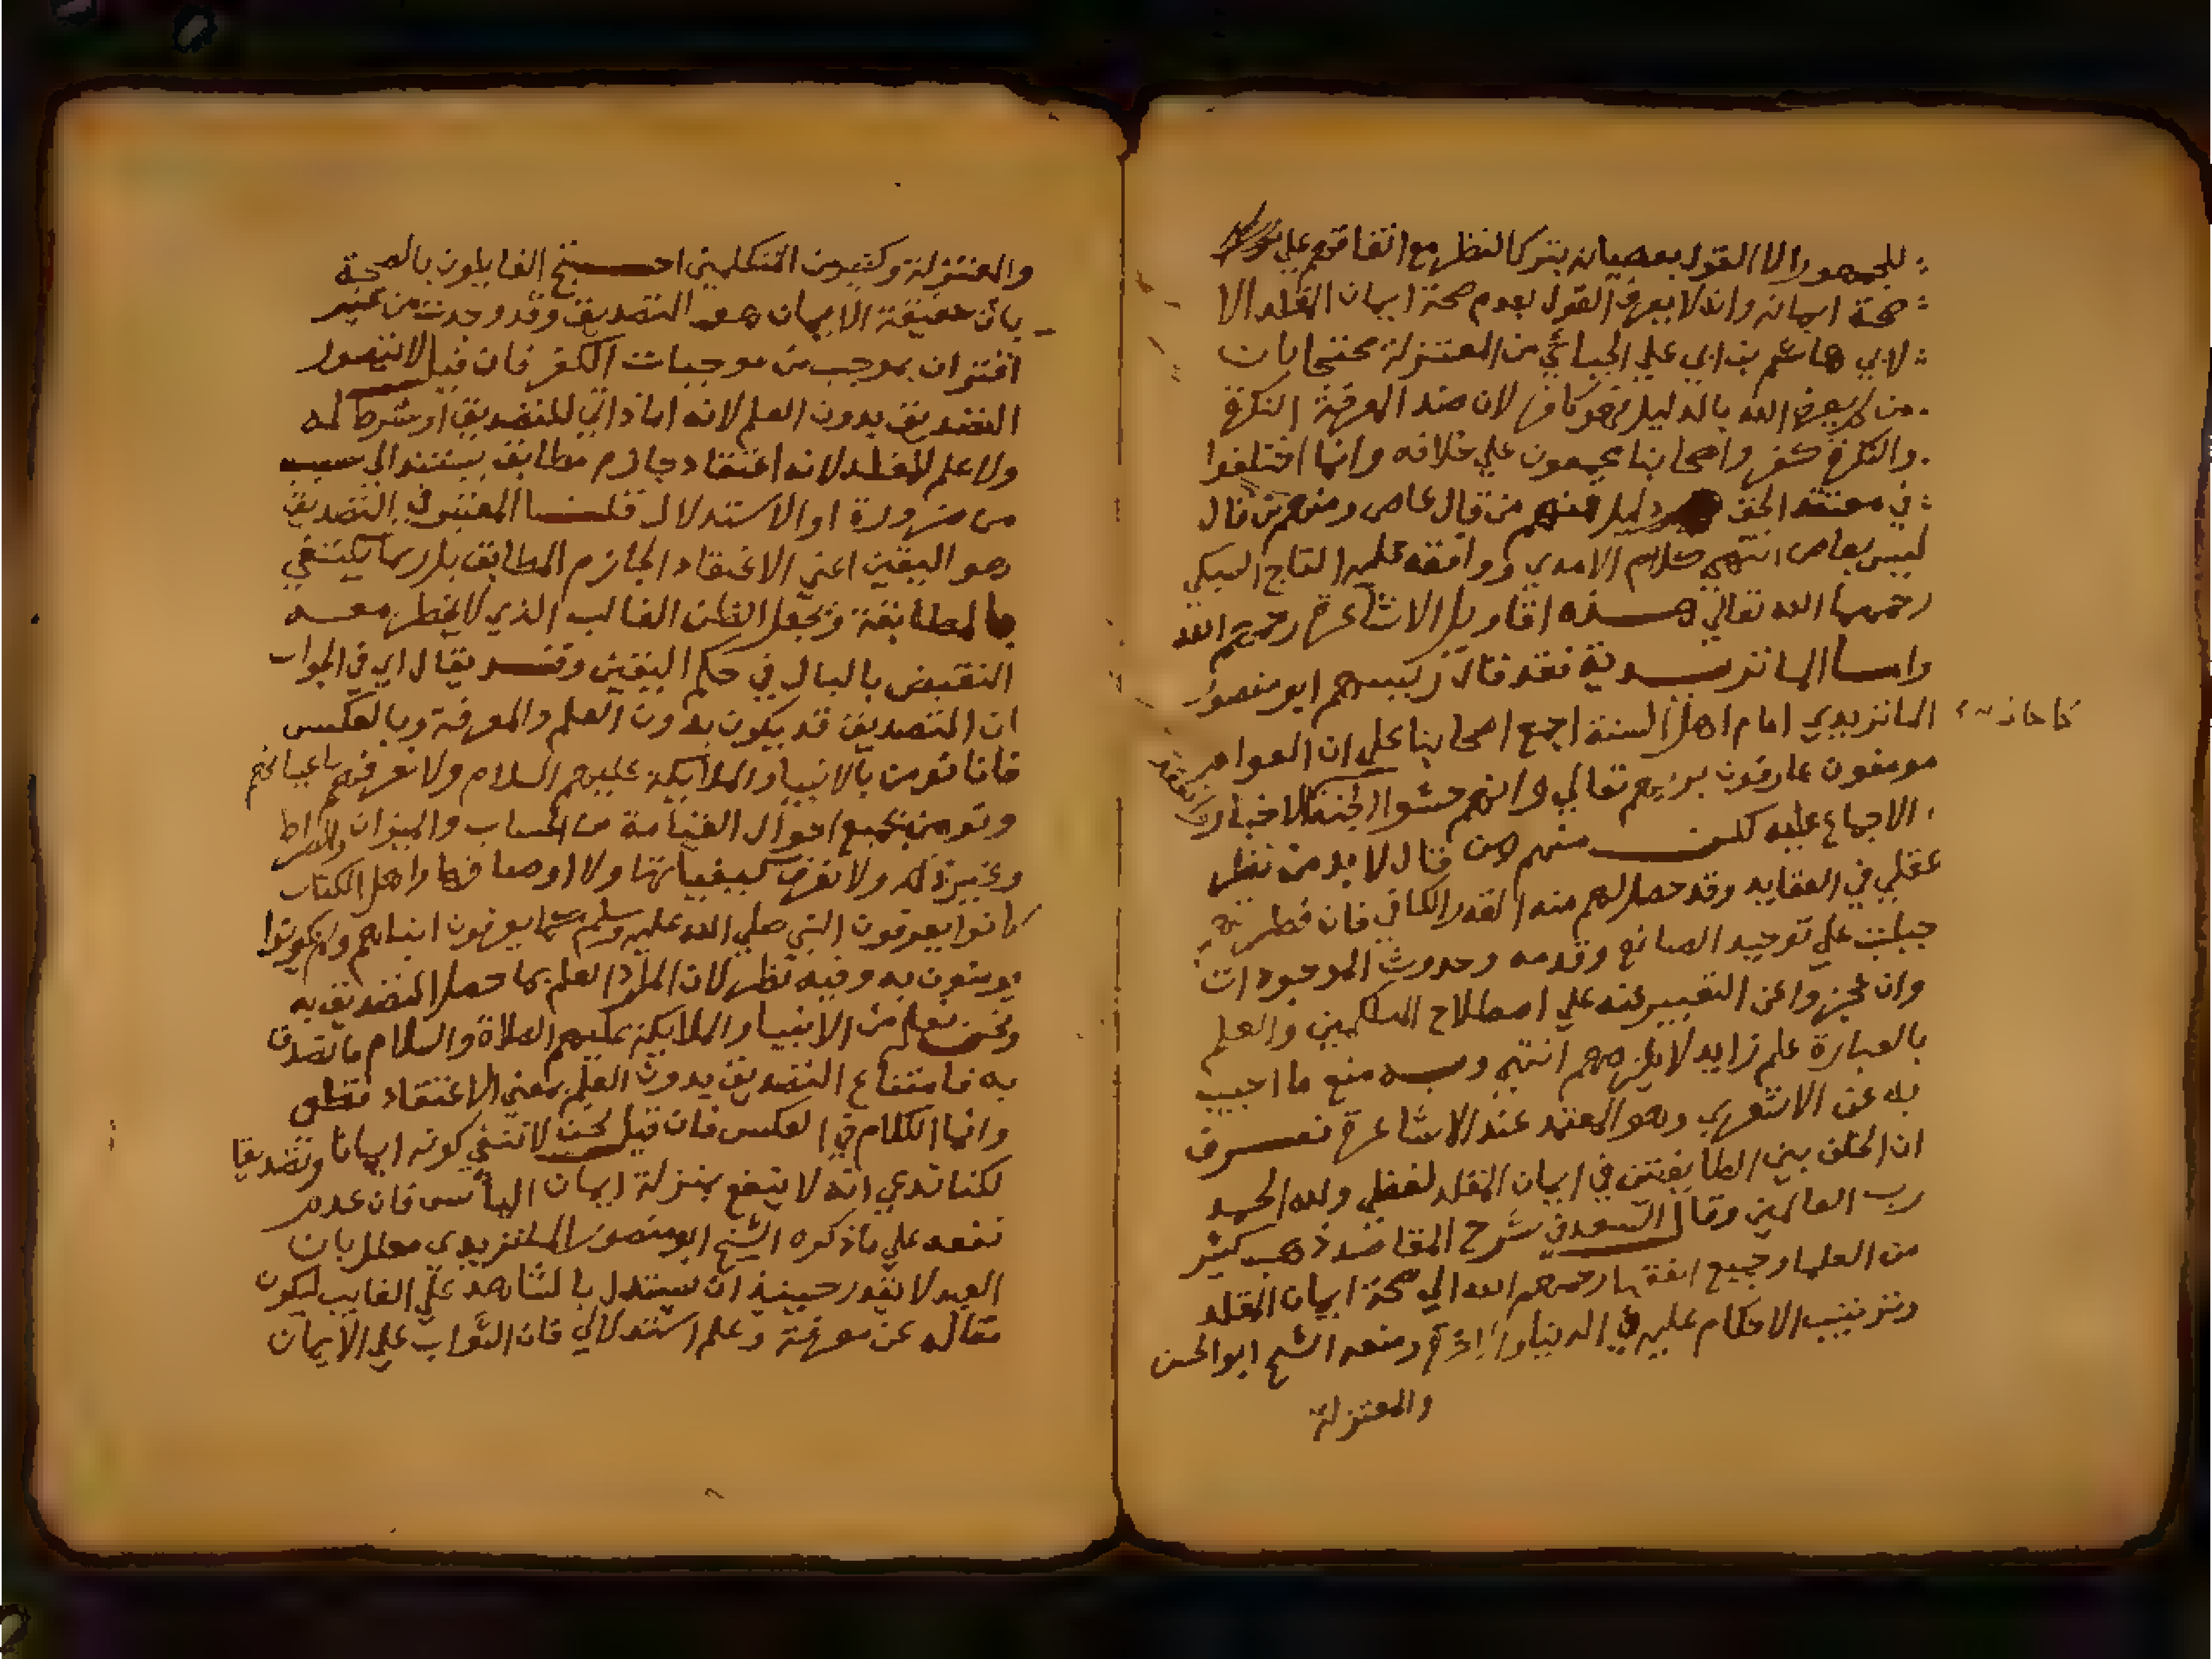 للجمهور الا القول بعصيانه بترك النظر مع اتفاقهم علي
صحة ايمانه وانه لا يعرف القول بعدم صحة ايمان المقلد الا
لابي هاشم بن ابي علي الجبائي من المعتزلة محتجا بان
من لم يعرف الله بالدليل فهو كافر لان ضد المعرفة النكرة
والنكرة كفر واصحابنا مجمعون علي خلافه وانما اختلفوا
في معتقد الحق دليل فمنهم من قال عاص ومنهم من قال
ليس بعاص انتهي كلام الامدي ووافقه عليه التاج السبكي
رحمهما الله تعالي هذه اقاويل الاشاعرة رحمهم الله
واما الماتريدية فقد قال رئيسهم ابو منصور
الماتريدي امام اهل السنة اجمع اصحابنا علي ان العوام
مومنون عارفون بربهم تعالي وانهم حشو الجنة للاخبار وانعقد
الاجماع عليه لكن منهم من قال لا بد من نظر
عقلي في العقايد وقد حصل لهم منه القدر الكافي فان فطرتهم
جبلت علي توحيد الصانع وقدمه وحدوث الموجودات
وان عجزوا عن التعبير عنه علي اصطلاح المتكلمين والعلم
بالعبارة علم زايد لا يلزمهم انتهي وبه منع ما اجيب
به عن الاشعري وهو المعتمد عند الاشاعرة فعرف
ان الخلف بين الطايفتين في ايمان المقلد لفظي ولله الحمد
رب العالمين وقال السعد في شرح المقاصد ذهب كثير
من العلما وجميع الفقها رحمهم الله الي صحة ايمان المقلد
وترتيب الاحكام عليه في الدنيا والاخرة ومنعه الشيخ ابو الحسن
والمعتزلة
والمعتزلة وكثير من المتكلمين احتج القايلون بالصحة
بان حقيقة الايمان هو التصديق وقد وجدت من غير
اقتران بموجب من موجبات الكفر فان قيل لا نتصور
التصديق بدون العلم لانه اما ذاتي للتصديق او شرط له
ولا علم للمقلد لانه اعتقاد جازم مطابق يستند الي سبب
من ضرورة او الاستدلال قلنا المعتبر في التصديق
هو اليقين اعني الاعتقاد الجازم المطابق بل ربما يكتفي
بالمطابقة ونجعل الظن الغالب الذي لا يخطر معه
النقيض بالبال في حكم اليقين وقد يقال اي في الجواب
ان التصديق قد يكون بدون العلم والمعرفة وبالعكس
فانا نومن بالانبيا والملايكة عليهم السلام ولا نعرفهم باعيانهم
ونومن بجميع احوال القيامة من الحساب والميزان والصراط
وغير ذلك ولا نعرف كيفياتها ولا اوصافها واهل الكتاب
كانوا يعرفون النبي صلي الله عليه وسلم كما يعرفون ابناهم ولم يكونوا
يومنون به وفيه نظر لان المراد العلم بما حصل التصديق به
ونحن نعلم من الانبيا والملايكة عليهم الصلاة والسلام ما نصدق
به فامتناع التصديق بدون العلم بمعني الاعتقاد قطعي
وانما الكلام في العكس فان قيل نحن لا ننفي كونه ايمانا وتصديقا
لكنا ندعي انه لا ينفع بمنزلة ايمان اليأس فان عدم
نفعه علي ما ذكره الشيخ ابو منصور الماتريدي معلل بان
العبد لا يقدر حينيذ ان يستدل بالشاهد علي الغايب ليكون
مقاله عن معرفة وعلم استدلالي فان الثواب علي الايمان